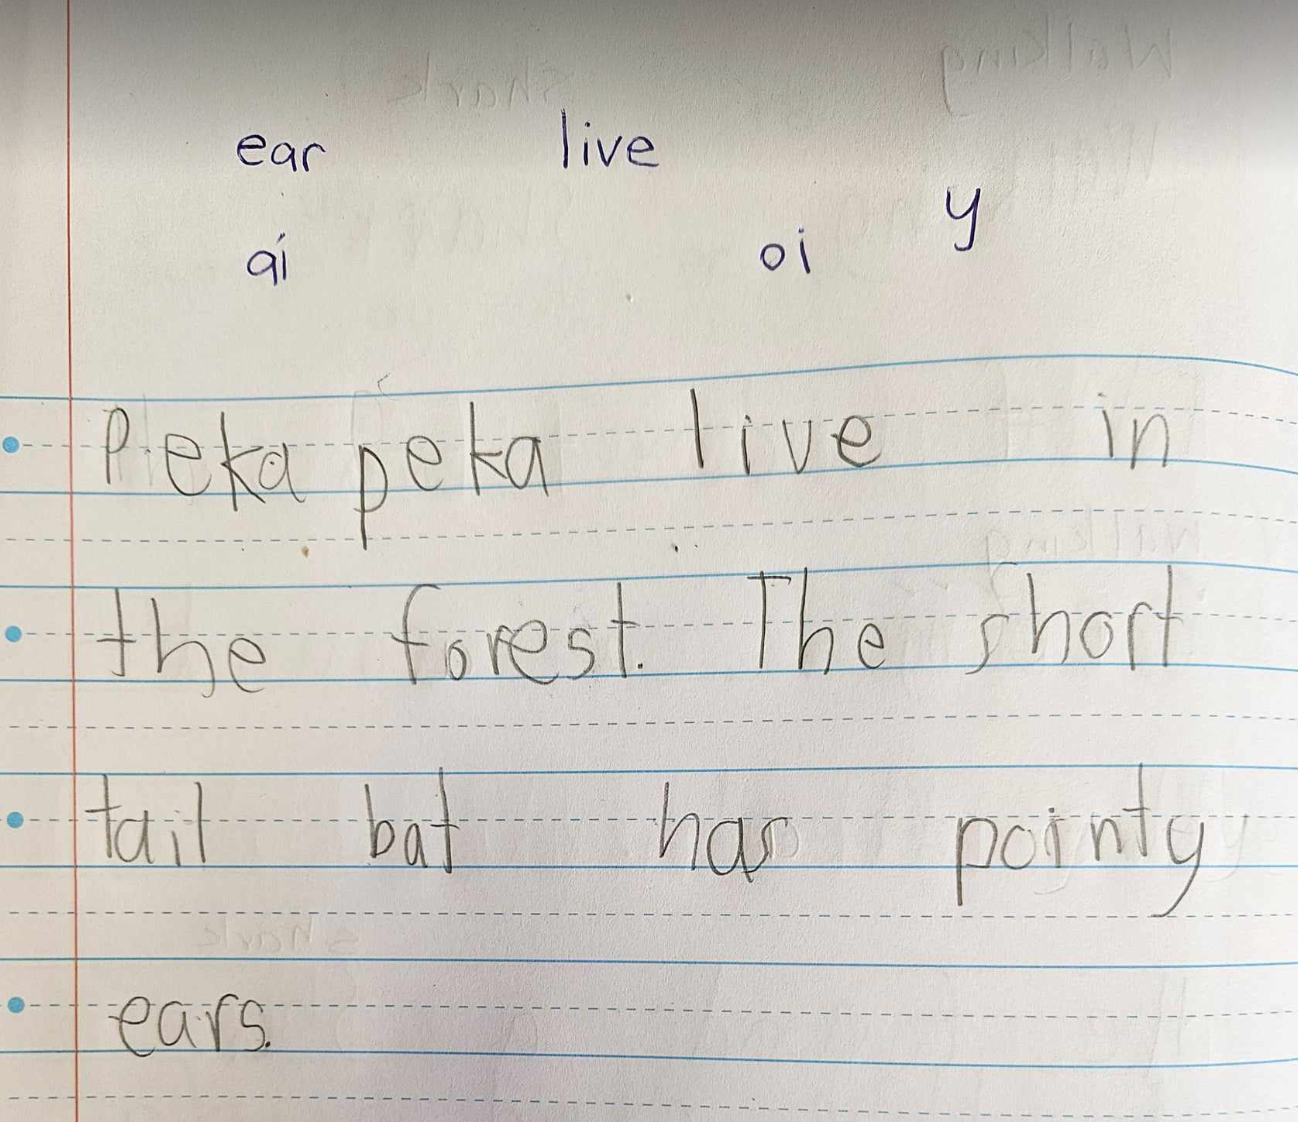 ear live
y
ai oi
Peka peka live in
the forest. The short
tail bat has pointy
ears.